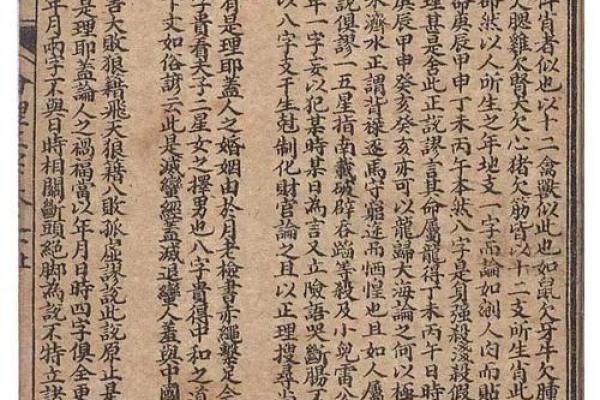 肖者似也以十二禽獸似此也如鼠欠牙牛欠腫
欠腿雞欠腎犬欠心猪欠筋皆以十二支所生肖此
然以人所生之年地支一字而論如剜人肉而貼
命庚辰甲申丁未丙午本然八字是身強殺淺殺假
理甚是舍此正說謬言其命屬龍得丁未丙午日時
庚辰甲申癸亥癸亥亦可以龍歸大海論之何以極
水濟水正謂背祿逐馬守窮途而恓惶也且如人屬
說俱謬一五星指南載破碎吞䧟等殺及小兒雷公
年一字妄以犯某時某日為言又立險語哭斷腸
以八字支干生尅制化財官論之且以正理搜尋
有是理耶蓋人之婚姻由於月老檢書赤繩繫足
字貴看夫子二星女之擇男也八字貴得中和之道
下文如俗諺云此是滅蠻經蓋滅退蠻人羞與中國
害大敗狼藉飛天狼藉八敗孤虛謬說此說原止是
是理耶蓋論人之禍福當以年月日時四字俱全更
年月兩字不與日時相關斷頭絕脚為說不特立